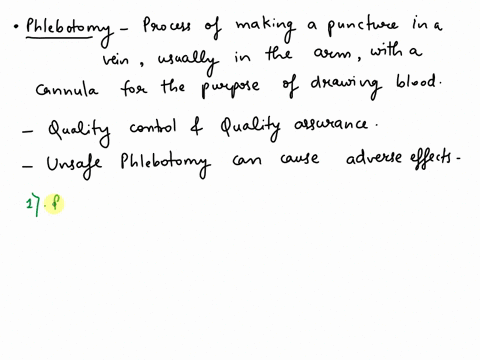 • Phlebotomy - Process of making a puncture in a
vein, usually in the arm, with a
cannula for the purpose of drawing blood.
- Quality control & Quality assurance.
- Unsafe Phlebotomy can cause adverse effects -
1)